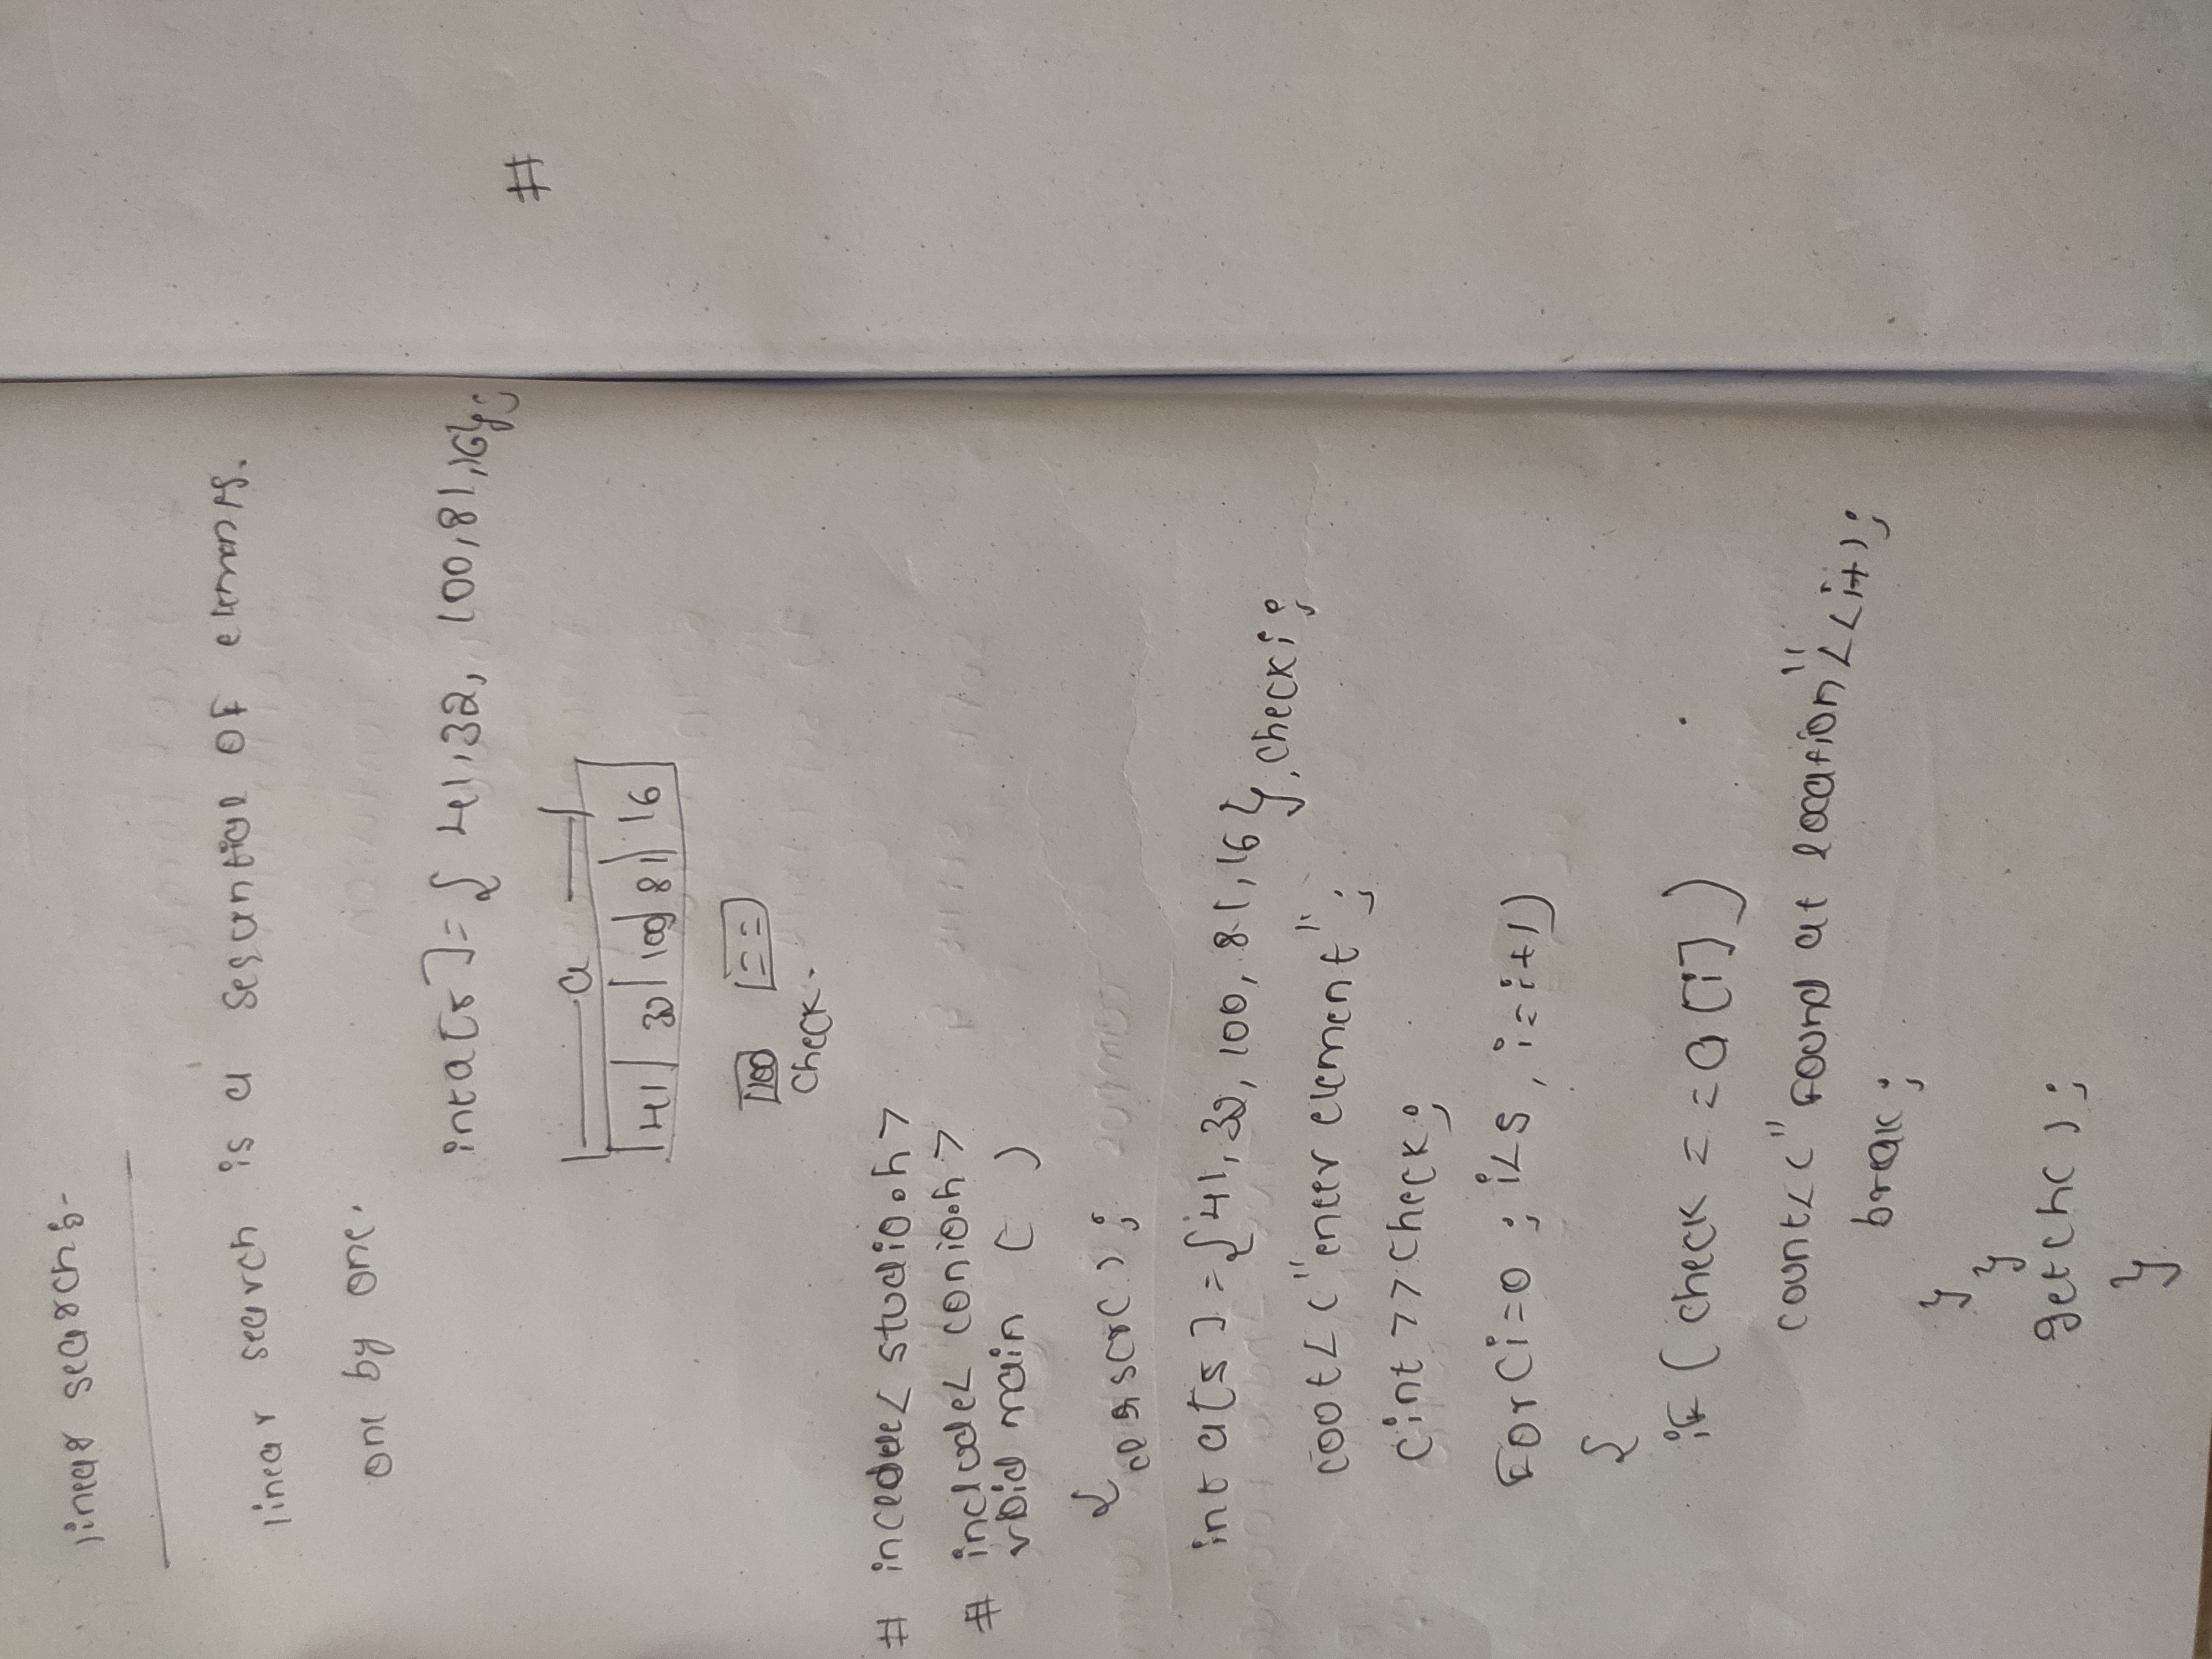 linear search:-
linear search is a sequntial of elements.
one by one.
int a[5]= { 41,32, 100,81,16};
#
a
41 | 32 | 100 | 81 | 16
100 ==
check.
# include< studio.h>
# include< conio.h>
void main ( )
{
clrscr( );
int a[5]={41,32,100,81,16},check,i;
coot<<"enter element";
cint>>check;
For(i=0 ; i<5 , i=i+1)
{
if (check = = a[i])
count<<"Found at location"<<i+1;
break;
}
}
getch( );
}